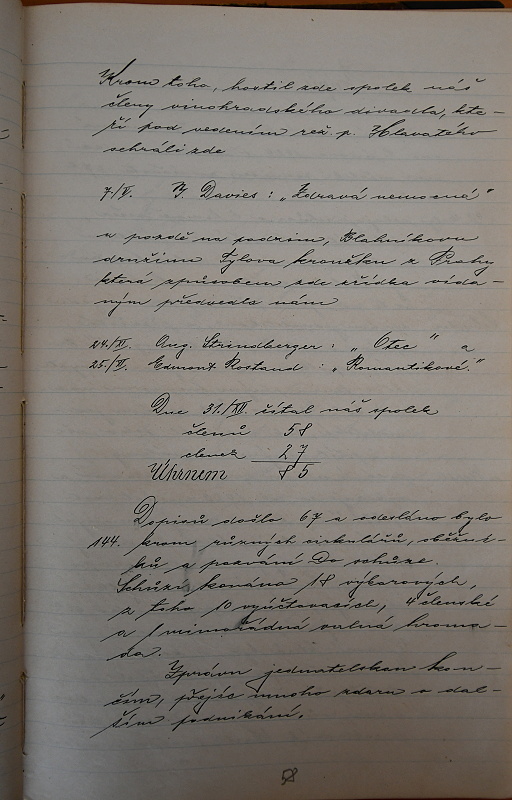 Krom toho, hostil zde spolek náš
členy vinohradského divadla, kte-
ří pod vedením rež. p. Hlavatého
sehráli zde
7/V. Y. Davies: „Zdravá nemocná"
a pozdě na podzim, Blahníkovu
družinu Tylova kroužku z Prahy
která způsobem zde zřídka vída-
ným předvedla nám
24./XI. Aug. Strindberger: „Otec" a
25/V. Edmont Rostand: „Romantikové."
Dne 31./XII. čítal náš spolek
členů 58
členek 27
Úhrnem 85
Dopisů došlo 67 a odesláno bylo
144. krom různých cirkulářů, oběžní-
ků a pozvání Do schůze.
Schůzí konáno 18 výborových,
z toho 10 vyúčtovacích, 4 členské
a 1 mimořádná valná hroma-
da.
Zprávu jednatelskou kon-
čím, přejíc mnoho zdaru v dal-
ším podnikání.
58